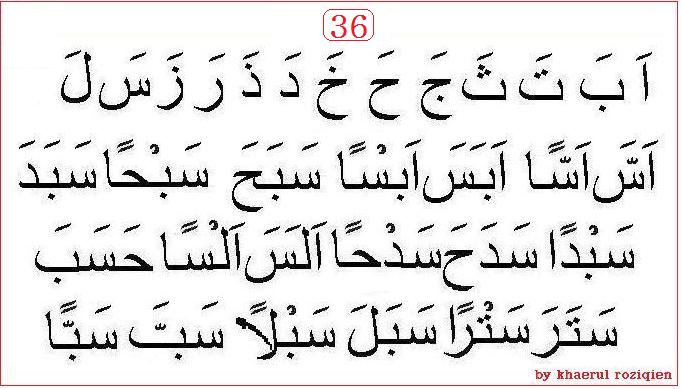 36
اَ بَ تَ ثَ جَ حَ خَ دَ ذَ رَ زَ سَ لَ
اَسَّ اَسًّا اَبَسَ اَبْسًا سَبَحَ سَبْحًا سَبَدَ
سَبْدًا سَدَحَ سَدْحًا اَلَسَ اَلْسًا حَسَبَ
سَتَرَ سَتْرًا سَبَلَ سَبْلًا سَبَّ سَبًّا
by khaerul roziqien